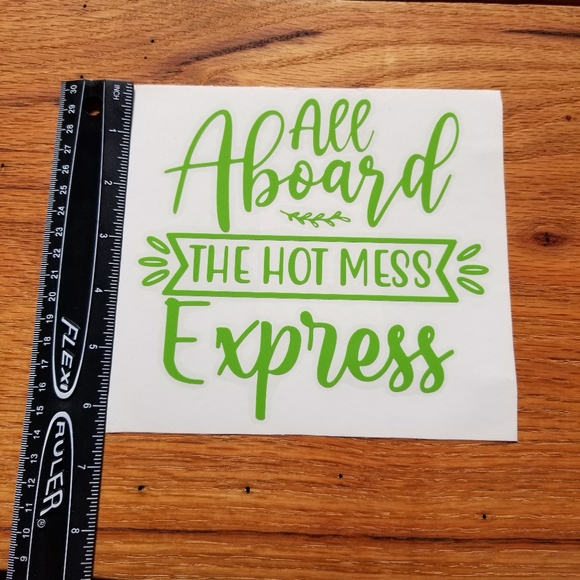 All
Aboard
THE HOT MESS
Express
INCH
1
2
3
4
5
6
7
8
30
29
28
27
26
25
24
23
22
21
20
19
18
17
16
15
14
13
12
11
10
9
FLEXI
RULER®